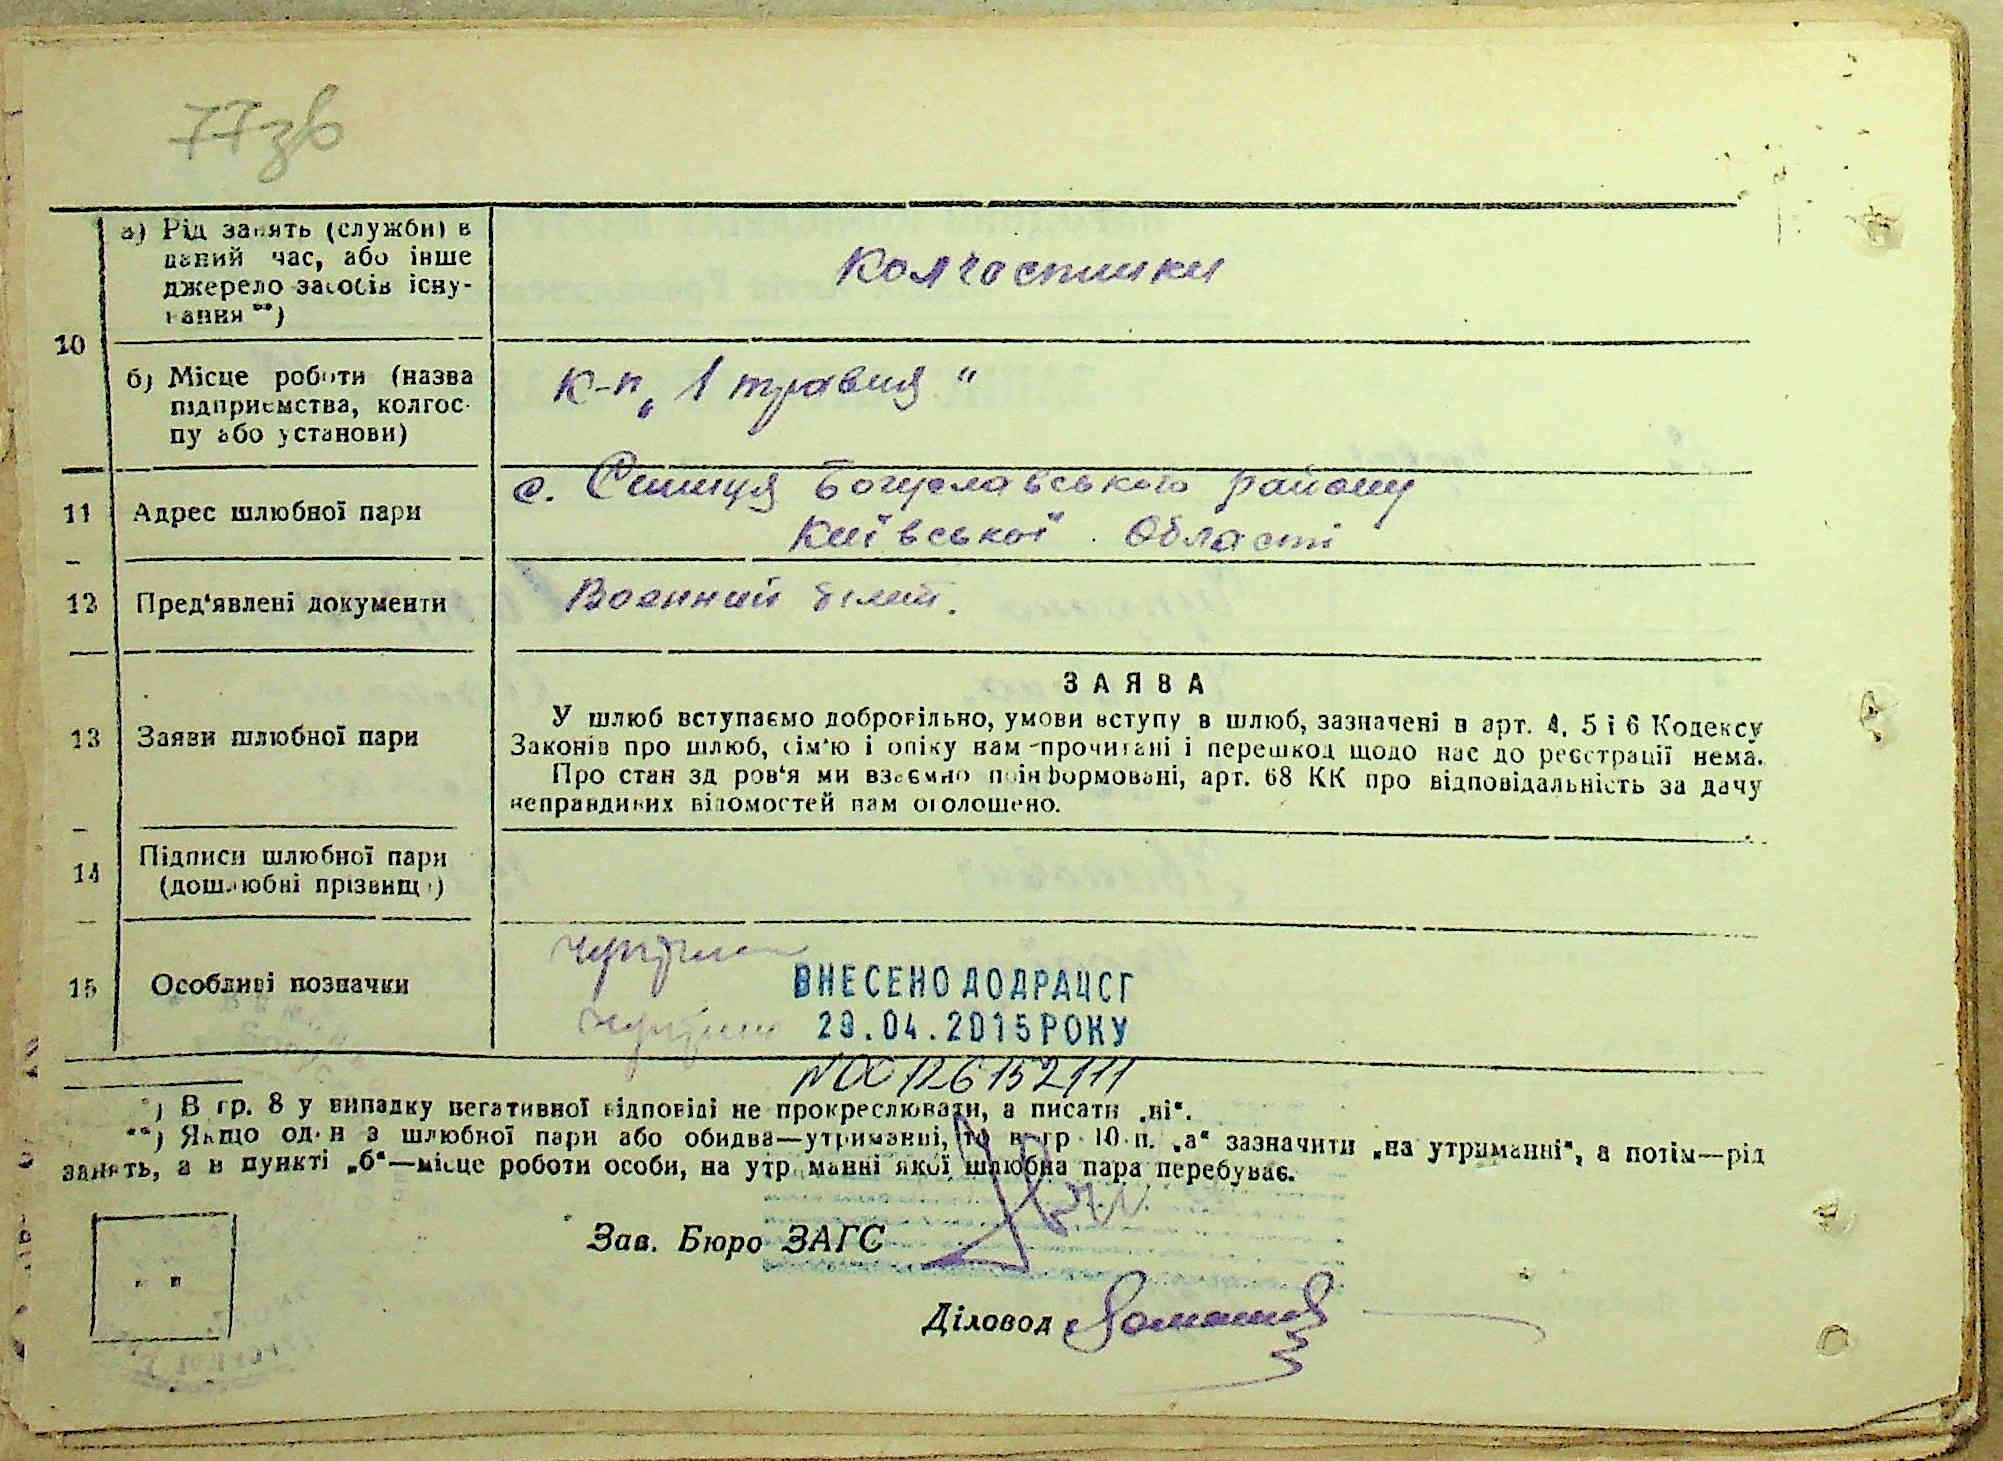 77зв
а) Рід занять (служби) в
даний час, або інше
джерело засобів існу-
вання **)
Колгоспники
10
б) Місце роботи (назва
підприємства, колгос-
пу або установи)
К-п „1 травня"
11
Адрес шлюбної пари
с. Синиця Богуславського району
Київської Області
12
Пред'явлені документи
Военний білет.
13
Заяви шлюбної пари
ЗАЯВА
У шлюб вступаємо добровільно, умови вступу в шлюб, зазначені в арт. 4, 5 і 6 Кодексу
Законів про шлюб, сім'ю і опіку нам прочитані і перешкод щодо нас до реєстрації нема.
Про стан здоров'я ми взаємно поінформовані, арт. 68 КК про відповідальність за дачу
неправдивих відомостей нам оголошено.
14
Підписи шлюбної пари
(дошлюбні прізвища)
15
Особливі позначки
ВНЕСЕНО ДО ДРАЦСГ
29.04.2015 РОКУ
N00126152111
*) В гр. 8 у випадку негативної відповіді не прокреслювати, а писати „ні".
**) Якщо один з шлюбної пари або обидва—утриманні, то в гр. 10 п. „а" зазначити „на утриманні", а потім—рід
занять, а в пункті „б"—місце роботи особи, на утриманні якої шлюбна пара перебуває.
Зав. Бюро ЗАГС
Діловод